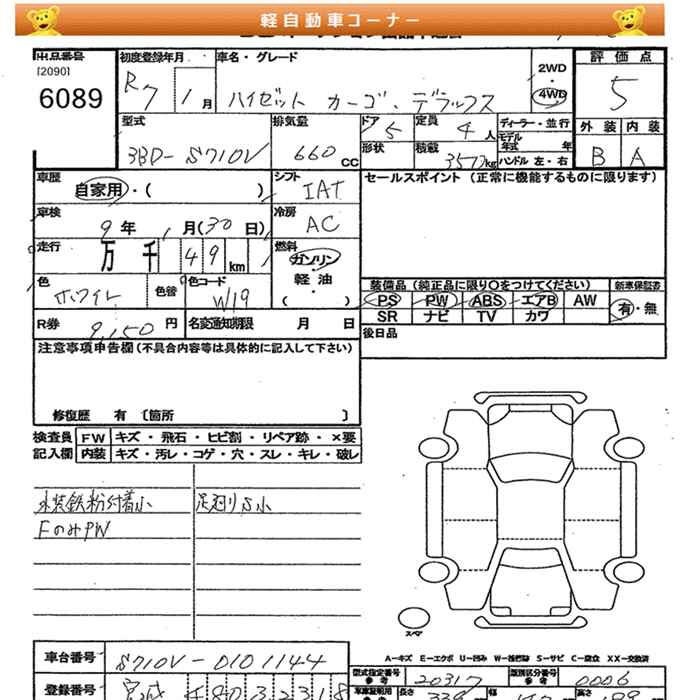 軽自動車コーナー
出品番号
[2090]
6089
初度登録年月
R7 1月
車名・グレード
ハイゼット カーゴ・デラックス
2WD
・
4WD
評価点
5
外装 内装
B A
型式
3BD-S710V
排気量
660 cc
ドア
5
形状
定員
4人
積載
350kg
ディーラー・並行
モデル年式 年
ハンドル 左・右
車歴
自家用・( )
シフト
IAT
セールスポイント (正常に機能するものに限ります)
車検
9年 1月(30日)
冷房
AC
走行
万 千 49 km
燃料
ガソリン
・
軽油
・
( )
色
ホワイト
色替
色コード
W19
装備品 (純正品に限り○をつけてください)
PS PW ABS エアB AW
SR ナビ TV カワ
新車保証書
有・無
R券
9,150円
名変通知期限 月 日
後日品
注意事項申告欄 (不具合内容等は具体的に記入して下さい)
修復歴 有 〔箇所 〕
検査員 記入欄
FW キズ・飛石・ヒビ割・リペア跡・×要
内装 キズ・汚レ・コゲ・穴・スレ・キレ・破レ
外装鉄粉付着小
FのみPW
足廻りS小
スペア
A-キズ E-エクボ U-凹み W-補修跡 S-サビ C-腐食 X-交換 XX-交換済
車台番号
S710V-0101144
登録番号
宮城 480 え 2318
型式指定番号
参考
20317
類別区分番号
参考
0006
長さ
339
幅
高さ